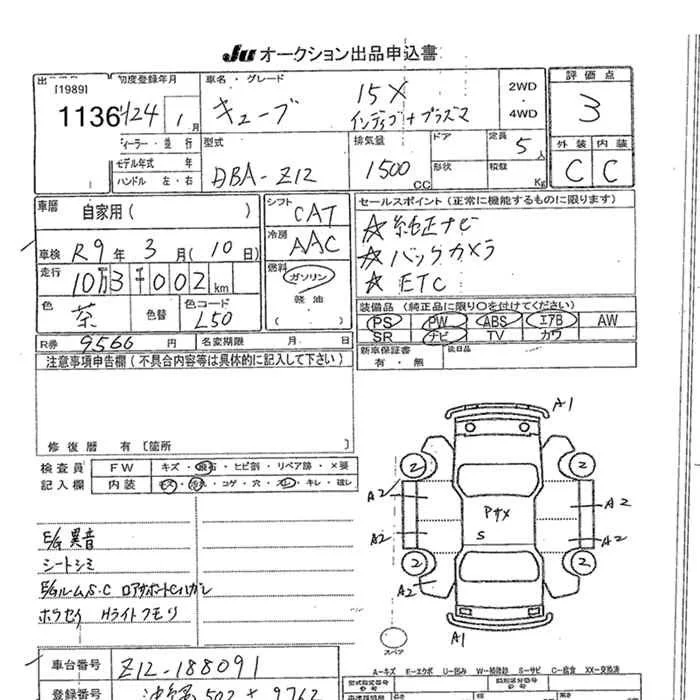 Ju オークション出品申込書
出
[1989]
1136
初度登録年月
H24 1月
車名・グレード
キューブ 15X
インディゴ+プラズマ
2WD
・
4WD
評価点
3
外装 内装
C C
ディーラー・並行
モデル年式 年
ハンドル 左・右
型式
DBA-Z12
排気量
1500 CC
ドア
形状
定員
5人
積載
Kg
車歴
自家用( )
車検 R9年3月(10日)
走行
10万3千002km
色
茶
色替
色コード
L50
シフト
CAT
冷房
AAC
燃料
ガソリン
・
軽油
・
( )
R券 9566 円 名変期限 月 日
セールスポイント(正常に機能するものに限ります)
☆純正ナビ
☆バックカメラ
☆ETC
装備品(純正品に限り○を付けてください)
PS PW ABS エアB AW
SR ナビ TV カワ
新車保証書
有・無
後日品
注意事項申告欄(不具合内容等は具体的に記入して下さい)
修復歴 有〔箇所 〕
検査員 FW キズ・飛石・ヒビ割・リペア跡・×要
記入欄 内装 キズ・汚れ・コゲ・穴・スレ・キレ・破レ
E/G異音
シートシミ
E/GルームS・C ロアサポートCハガレ
ホラセイ Hライトクモリ
A1
2 2
A2 A2
Pサメ
S
A2 A2
2 2
A2
A1
スペア
A-キズ E-エクボ U-凹み W-補修跡 S-サビ C-腐食 XX-交換済
車台番号 Z12-188091
登録番号 502 9762
型式指定番号
類別区分番号